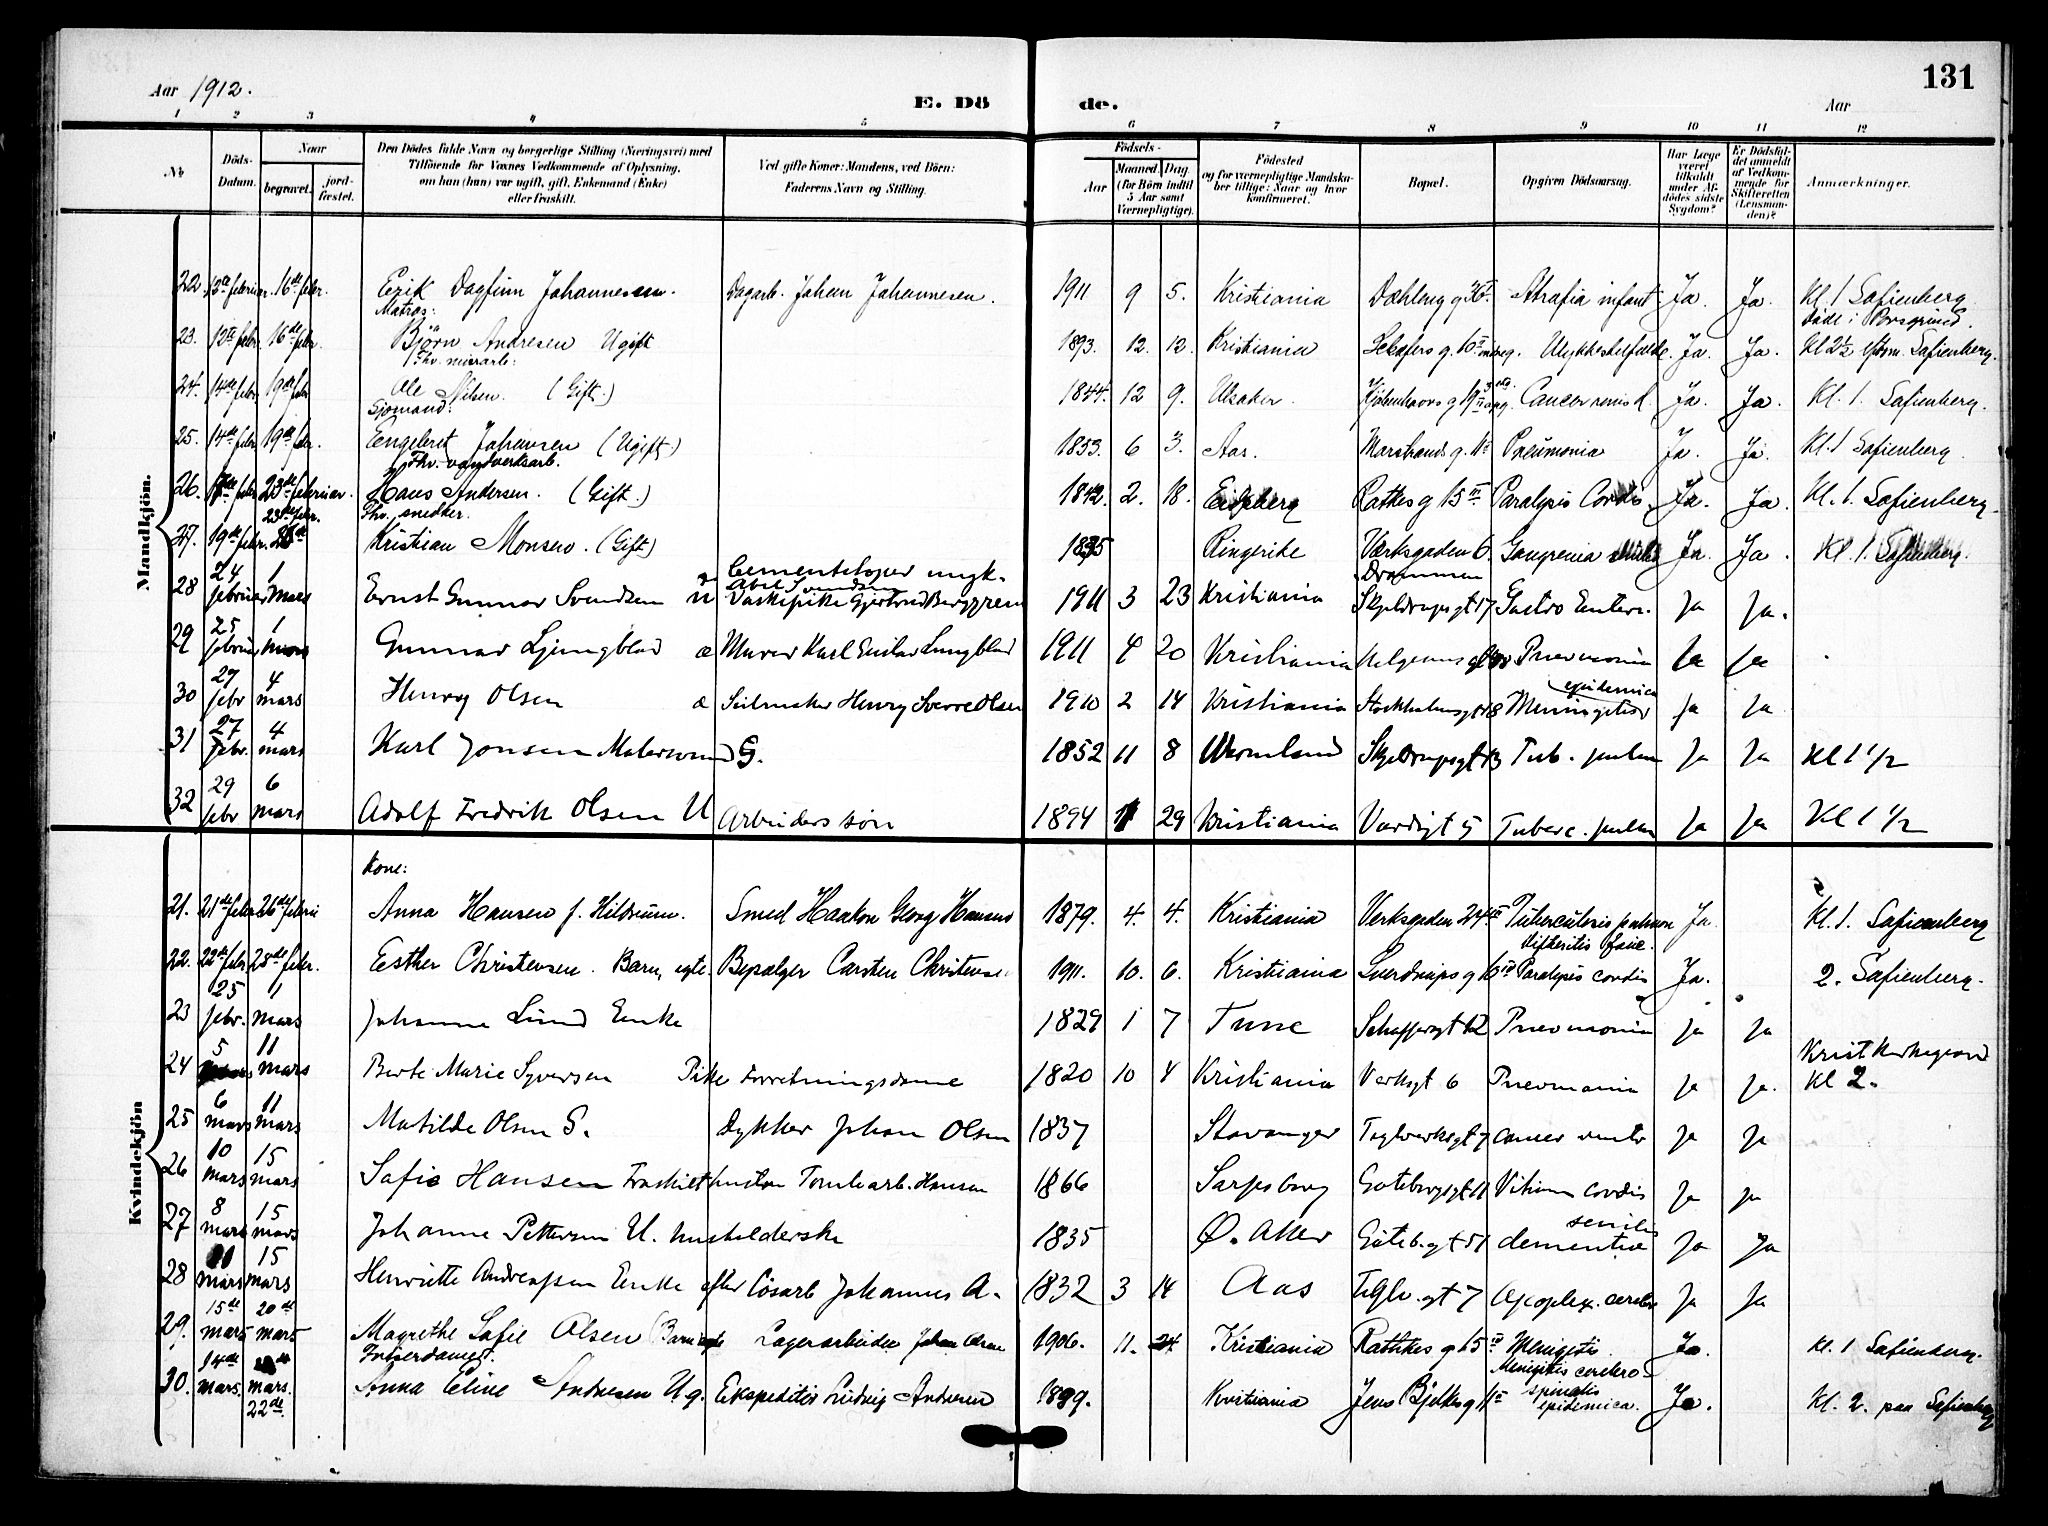 131
Aar 1912.
E. Dö de.
Aar
1 2 3 4 5 6 7 8 9 10 11 12
No
Döds-Datum.
Naar
begravet. jord-fæstet.
Den Dödes fulde Navn og borgerlige Stilling (Næringsvei) med Tilföiende for Voxnes Vedkommende af Oplysning, om han (hun) var ugift, gift, Enkemand (Enke) eller fraskilt.
Ved gifte Koner: Mandens, ved Börn: Faderens Navn og Stilling.
Födsels-
Aar Maaned. Dag.
(for Börn indtil 5 Aar samt Værnepligtige).
Födested og for værnepligtige Mandskaber tillige: Naar og hvor konfirmeret.
Bopæl.
Opgiven Dödsaarsag.
Har Læge været tilkaldt under Afdödes sidste Sygdom?
Er Dödsfaldet anmeldt af Vedkommende for Skifteretten (Lensmanden)?
Anmærkninger.
Mandkjön.
22. 13de februar. 16de febr. Erik Dagfinn Johannessen. Dagarb. Johan Johannesen. 1911 9 5. Kristiania Dæhleng g 36 Atrafia infant. Ja. Ja. Kl. 1 Sofienberg
Matros: Död i Porsgrund.
23. 12te febr. 16de febr. Björn Andresen Ugift 1893. 12. 12. Kristiania Schæfers g. 10 Ulykkestilfælde. Ja. Ja. Kl 2½ Sofienberg.
Fhv. murarb:
24. 14de febr 19de febr Ole Nilsen. (Gift.) 1844. 12 9. Ulsaker. Kjöbenhavns g 19 Cancer renis d. Ja. Ja. Kl. 1. Sofienberg.
Sjömand:
25. 14de febr 19de febr. Engebret Johansen (Ugift) 1853. 6 3. Aas. Marstrands g. 11 Pneumonia Ja. Ja. Kl. 1 Sofienberg
Fhv. vandverksarb.
26. febr 23de februar. Hans Andersen. (Gift.) 1842. 2. 18. Eidsberg Rathkes g 15 III Paralysis Cordis. Ja Ja. Kl. 1. Sofienberg.
Fhv. snedker. 23de febr.
27. 19de febr. Kristian Monsen. (Gift) 1835 Ringerike Værksgaden 6. Gangrenia Ja Ja. Kl. 1. Sofienberg.
Cementstøper ungk. Drammen
28 24 februar 1 mars Ernst Gunnar Svendsen u Vaskepike Gjertrud Berggren 1911 3 23 Kristiania Skjeldrupsgt 17 Gastro Enteri. Ja Ja.
29 25 februar 1 mars Gunnar Ljungblad æ Murer Karl Gustav Lungblad 1911 4 20 Kristiania Helgesensgt Pnevmonia Ja Ja
30 27 febr 4 mars Henry Olsen æ Seilmaker Henry Sverre Olsen 1910 2 14 Kristiania Stockholmsgt 18 epidemica Meningitis Ja Ja
31 27 febr. 4 mars Karl Jonsen Malersvend G. 1852 11 8 Wermland Skjeldrupsgt 13 Tub. pulm Ja Ja Kl 1 1/2
32 29 febr 6 mars Adolf Fredrik Olsen U Arbeiders søn 1894 11 29 Kristiania Vardigt 5 Tuberc. pulm Ja Ja Kl 1 1/2
Kvindekjön
Kone:
21. 21de febr 26de februar Anna Hansen f. Hildrum. Smed Haakon Georg Hansen 1879. 4. 4. Kristiania Verksgaden 24 Tuberculosis pulmon Ja. Kl. 1. Sofienberg
22. 22de febr. 28de febr. Esther Christensen. Barn, egte. Bepælger Carsten Christensen 1911. 10. 6. Kristiania Difteritis fauc. Paralysis cordis Ja. 2. Sofienberg.
23 25 febr. 11 mars Johanne Lund Enke 1829 1 7 Tune Schæffersgt 12 Pnevmonia Ja Ja
24 5 mars 11 mars Berte Marie Syversen Pike Forretningsdame 1820 10 4 Kristiania Verksgt 6 Pnevmonia Ja Ja. Krist Kirkegaard Kl 2.
25 6 mars 11 mars Matilde Olsen G. Dykker Johan Olsen 1837 Stavanger Teglverksgt 7 cancer ventr Ja Ja
26 10 mars 15 mars Safie Hansen Fraskilt hustru Tomtearb. Hansen 1866 Sarpsborg Gøteborgsgt 11 Vitium cordis Ja Ja
27 8 mars 15 mars Johanne Pettersen U. husholderske 1835 Ø. Aker Gøteb.gt 51 senilis dementia Ja Ja
28 11 mars 15 mars Henriette Andreassen Enke efter Løsarb Johannes A. 1832 3 14 Aas Teglv.gt 7 Apoplex. cerebr Ja Ja
29. 15de mars 20de mars Magrethe Sofie Olsen (Barn egte Lagerarbeider Johan Olsen 1906. 11. 24 Kristiania Rathkes g 15 Menigitis. Ja. Kl. 1 Sofienberg.
Frisørdame.
30. 14de mars. mars. 22de Anna Eline Andresen Ug. Ekspeditör Ludvig Andresen 1899. Kristiania Jens Bjelkes g 11 Menigitis cerebro spinalis epidemica. Ja. Kl. 2. paa Sofienberg